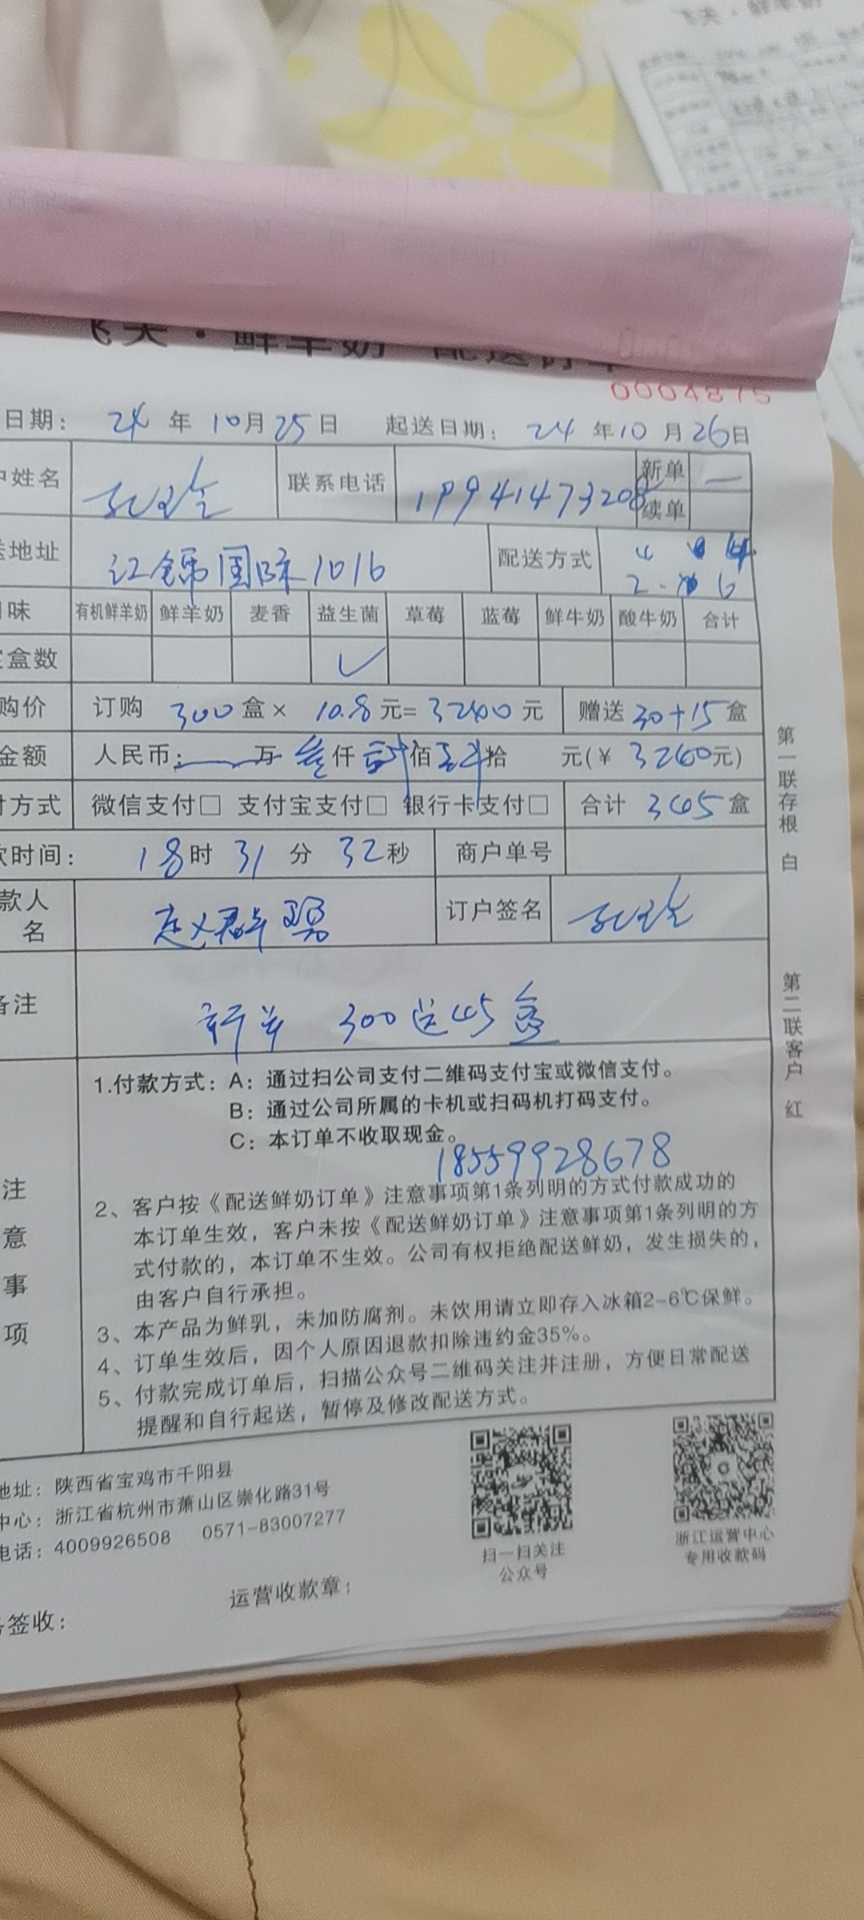 飞天·鲜羊奶 配送订单
0004875
日期: 24 年 10月25日 起送日期: 24 年10月26日
户姓名 孔玲 联系电话 19941473208 新单 一
续单
送地址 江锦国际1016 配送方式
口味 有机鲜羊奶 鲜羊奶 麦香 益生菌 草莓 蓝莓 鲜牛奶 酸牛奶 合计
定盒数 ✓
购价 订购 300盒× 10.8元= 3240元 赠送 30+15盒
金额 人民币: 万 叁仟 贰佰 拾 元(¥ 3260元)
付方式 微信支付□ 支付宝支付□ 银行卡支付□ 合计 345盒
款时间: 18时 31分 32秒 商户单号
款人名 赵群 订户签名 孔玲
备注 新单 300送45盒
注意事项
1.付款方式: A: 通过扫公司支付二维码支付宝或微信支付。
B: 通过公司所属的卡机或扫码机打码支付。
C: 本订单不收取现金。
18559928678
2、客户按《配送鲜奶订单》注意事项第1条列明的方式付款成功的
本订单生效，客户未按《配送鲜奶订单》注意事项第1条列明的方
式付款的，本订单不生效。公司有权拒绝配送鲜奶，发生损失的，
由客户自行承担。
3、本产品为鲜乳，未加防腐剂。未饮用请立即存入冰箱2-6℃保鲜。
4、订单生效后，因个人原因退款扣除违约金35%。
5、付款完成订单后，扫描公众号二维码关注并注册，方便日常配送
提醒和自行起送，暂停及修改配送方式。
第一联存根 白
第二联客户 红
地址: 陕西省宝鸡市千阳县
中心: 浙江省杭州市萧山区崇化路31号
电话: 4009926508 0571-83007277
扫一扫关注
公众号
浙江运营中心
专用收款码
运营收款章:
签收: